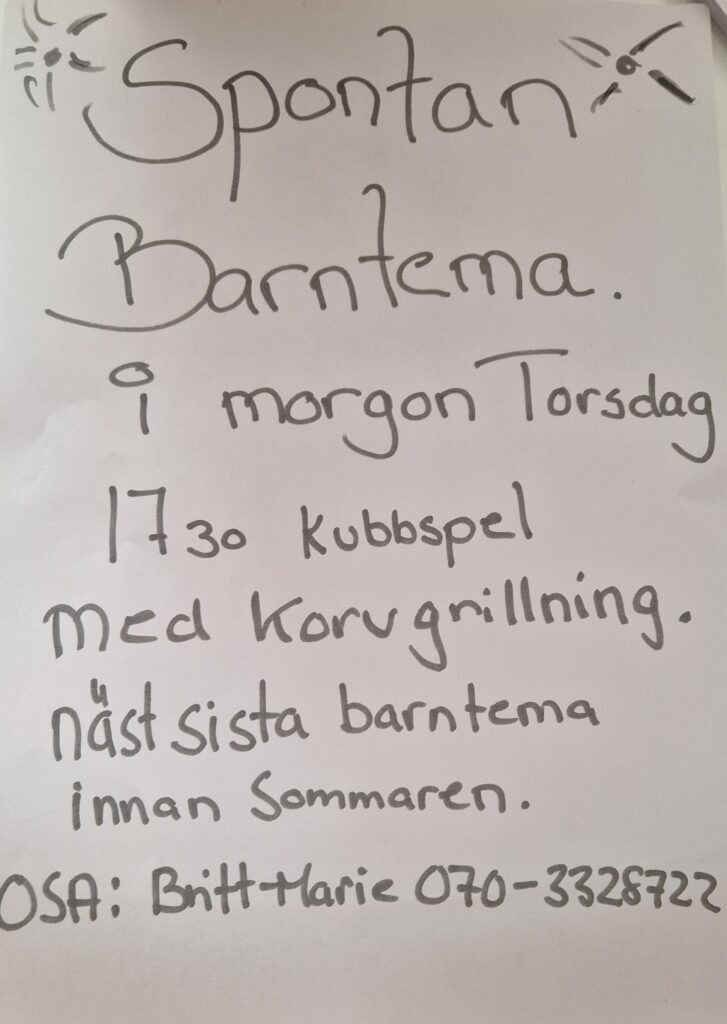 Spontan
Barntema.
i morgon Torsdag
1730 kubbspel
med korvgrillning.
näst sista barntema
innan Sommaren.
OSA: Britt-Marie 070-3328722